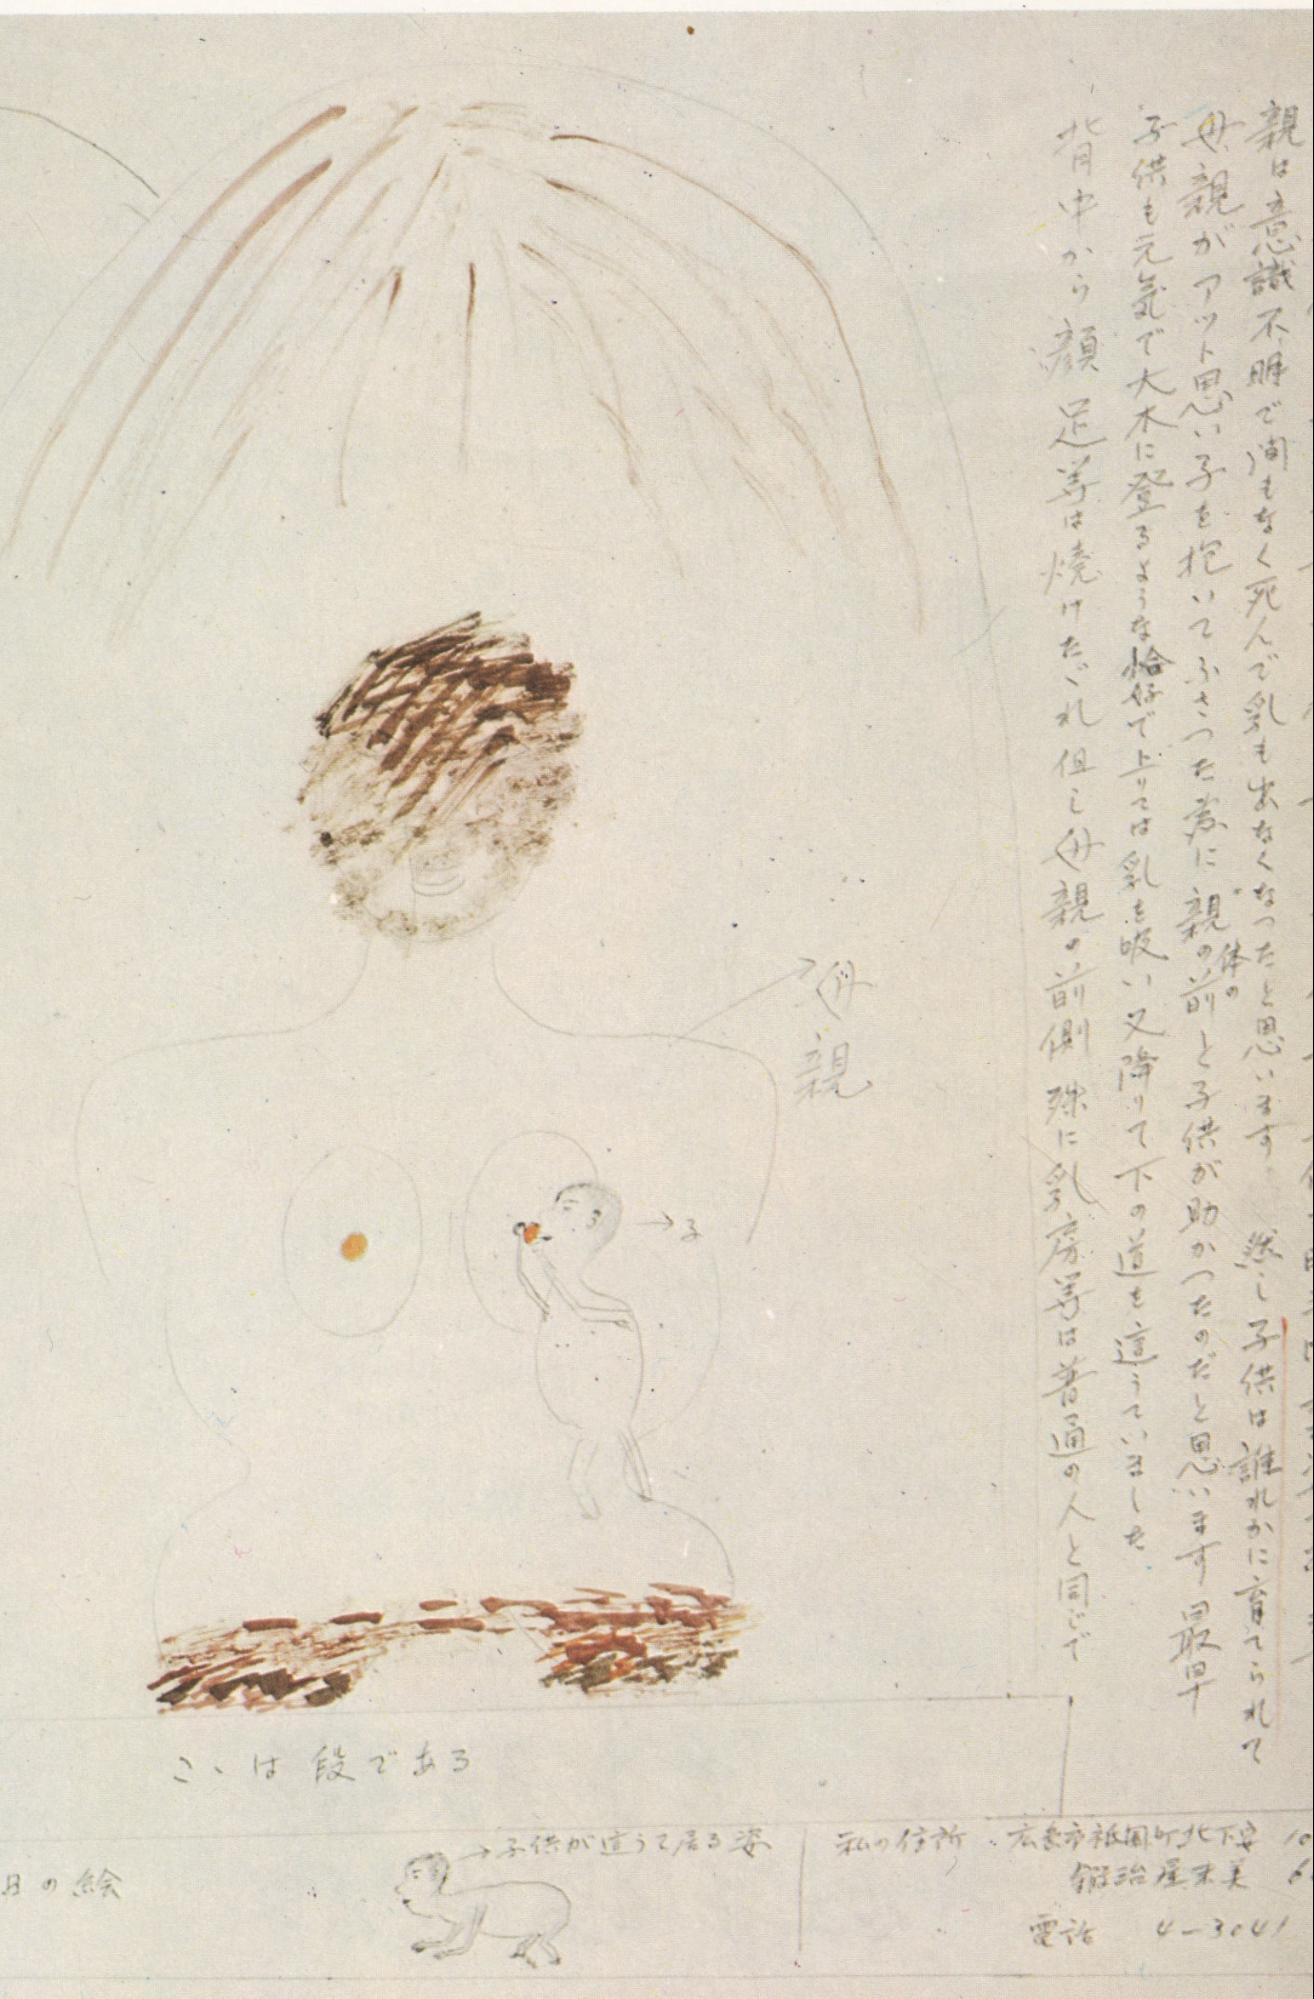 親は意識不明で間もなく死んで乳も出なくなつたと思います 然し子供は誰れかに育てられて
母親がアット思い子を抱いてふさつた為に親の体の前と子供が助かつたのだと思います 最早
子供も元気で大木に登るような恰好で上りては乳を吸い又降りて下の道を這うていました
背中から顔 足等は焼けたゞれ 但し母親の前側 殊に乳房等は普通の人と同じで
→母親
→子
こゝは段である
日の絵
→子供が這うて居る姿
私の住所 広島市祇園町北下安
鍛治屋末美
電話 4-3041